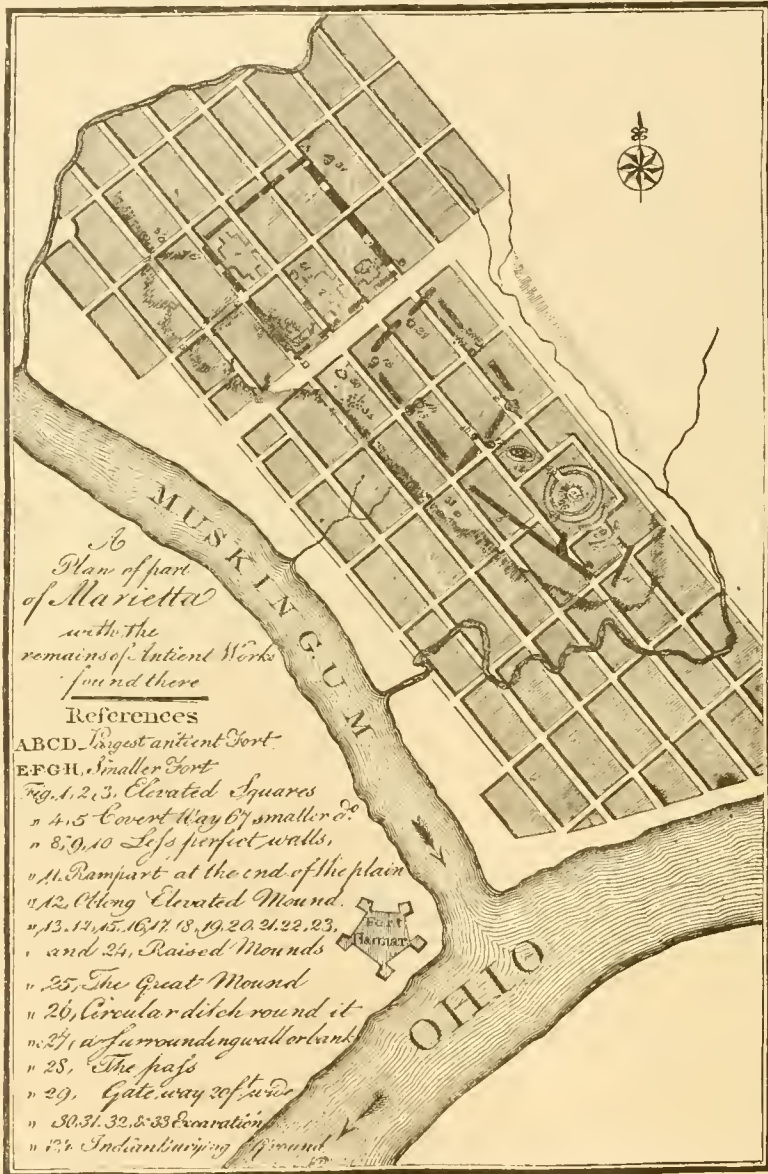 A
Plan of part
of Marietta
with the
remains of Antient Works
found there
References
ABCD_ Largest antient Fort
E·F·G·H, Smaller Fort
Fig. 1, 2, 3, Elevated Squares
" 4, 5 Covert Way 67 smaller do.
" 8, 9, 10 Less perfect walls,
" 11. Rampart at the end of the plain
" 12, Oblong Elevated Mound.
" 13. 14, 15. 16, 17. 18. 19. 20. 21. 22, 23,
" and 24, Raised Mounds
" 25, The Great Mound
" 26, Circular ditch round it
" 27, a surrounding wall or bank
" 28, The pass
" 29, Gate way 20ft. wide
" 30. 31. 32, & 33 Excavation
" 34 Indian burying Ground
MUSKINGUM
Fort
Harmar
OHIO